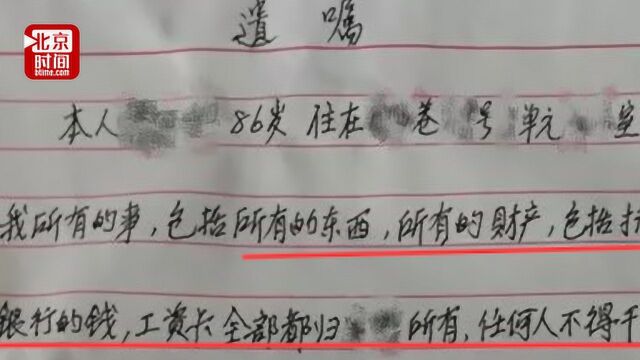 北京
时间
btime.com
遺嘱
本人 86岁 住在 巷 号 单元 室
我所有的事，包括所有的东西，所有的財产，包括
銀行的钱，工资卡全部都归 所有，任何人不得干